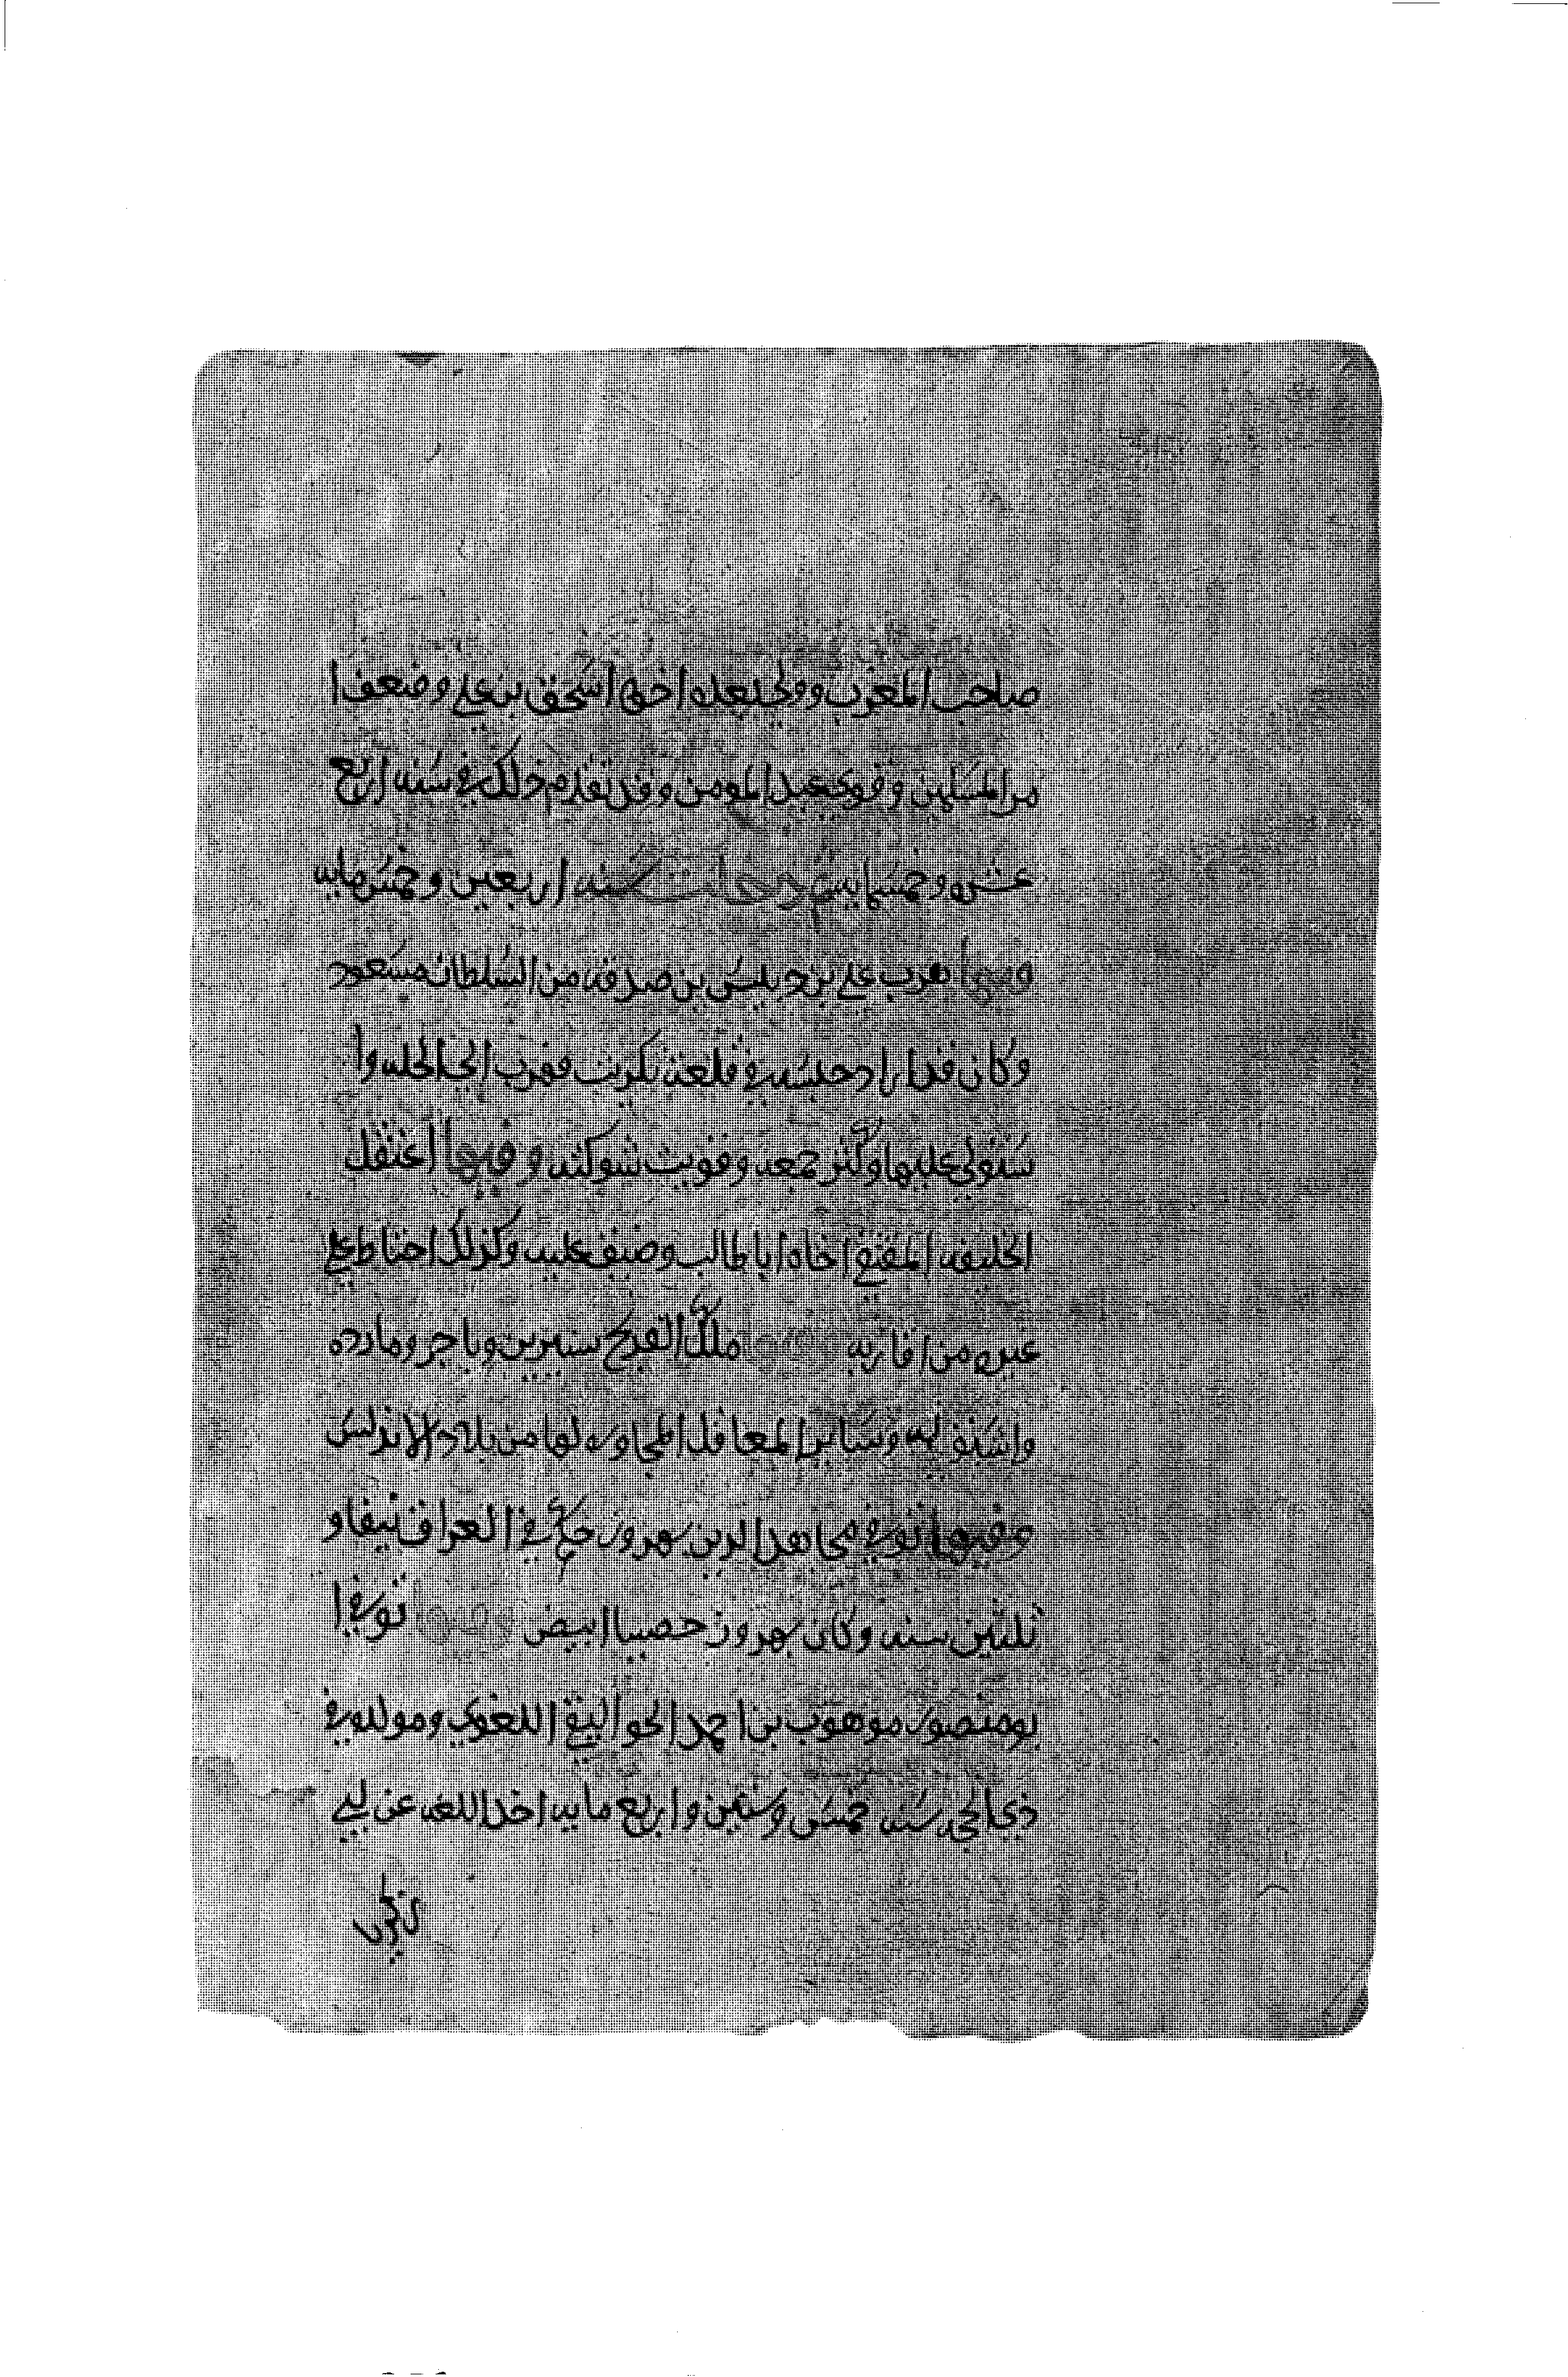 صاحب المغرب وولي بعده اخوه اسحق بن علي وضعف ا
مر المسلمين وقوي عبد المومن وقد تقدم ذلك في سنه اربع
عشره وخمسمايه ثم دخلت سنه اربعين وخمس مايه
وفيها هرب علي بن دبيس بن صدقه من السلطان مسعود
وكان قد اراد حبسه في قلعة تكريت فهرب الي الحله وا
ستولي عليها وكثر جمعه وقويت شوكته وفيها اعتقل
الخليفه المقتفي اخاه ابا طالب وضيق عليه وكذلك احتاط علي
غيره من اقاربه ملك الفرنج شنترين وباجر ومارده
واشبونه وساير المعاقل المجاوره لها من بلاد الاندلس
وفيها توفي مجاهد الدين بهروز حكم في العراق نيفا و
ثلثين سنه وكان بهروز خصيا ابيض توفي ا
بو منصور موهوب بن احمد الجواليقي اللغوي ومولده في
ذي الحجه سنه خمس وستين واربع مايه اخذ اللغه عن ابي